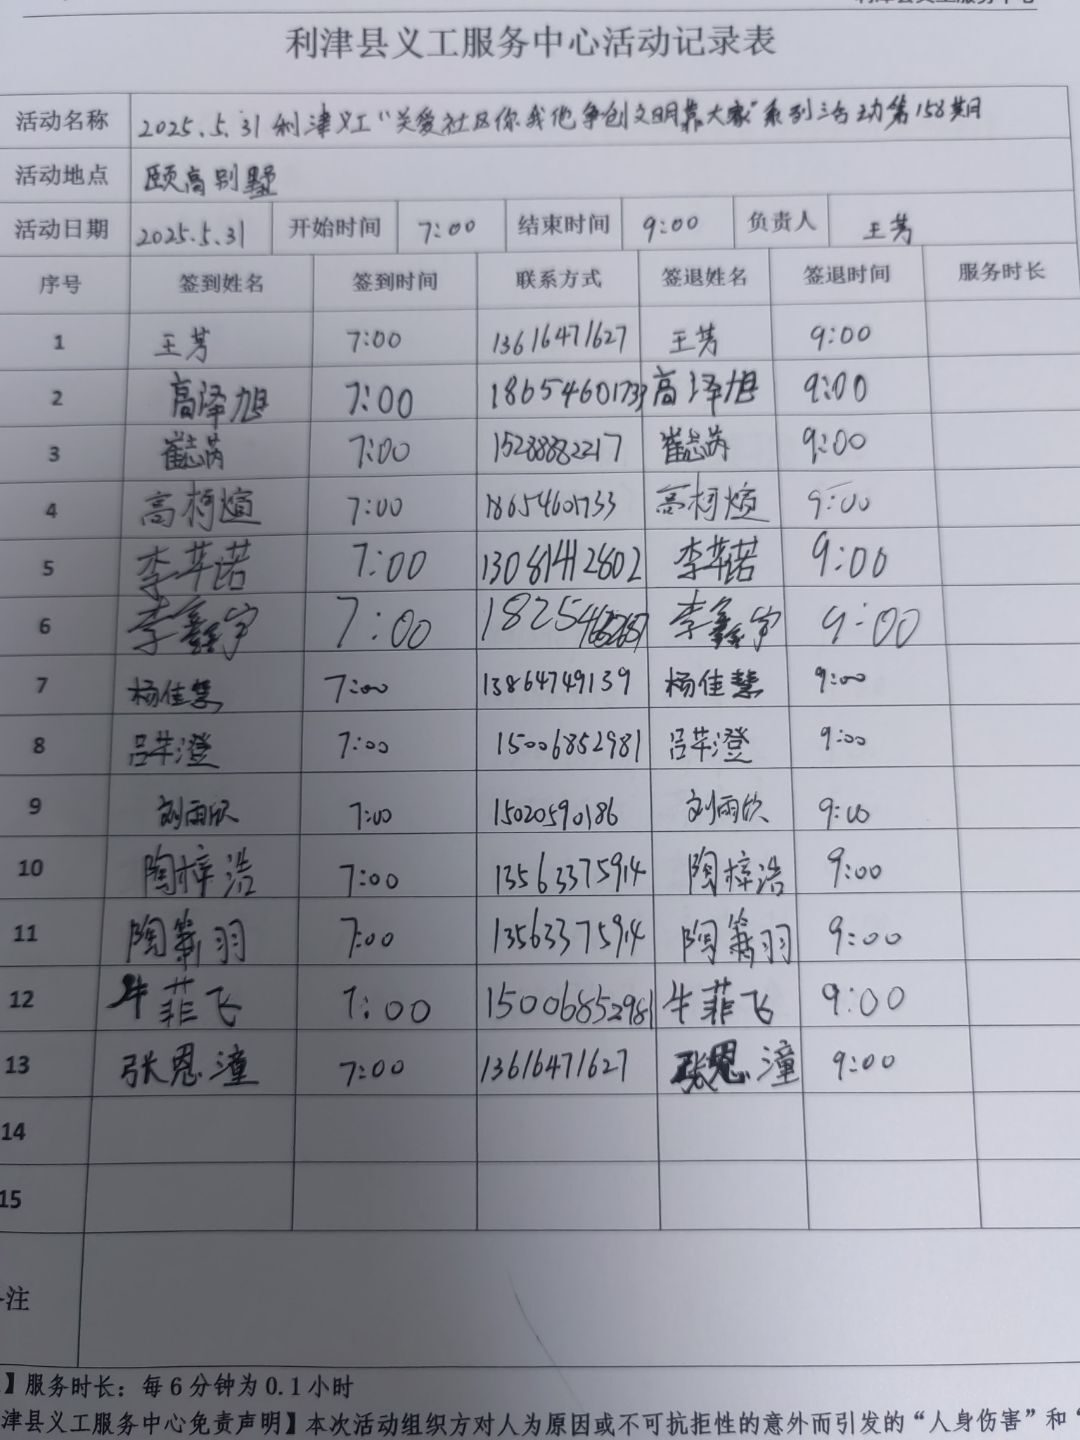 利津县义工服务中心活动记录表
活动名称 2025.5.31利津义工“关爱社区你我他争创文明靠大家”系列活动第158期
活动地点 颐高别墅
活动日期 2025.5.31 开始时间 7:00 结束时间 9:00 负责人 王芳
序号 签到姓名 签到时间 联系方式 签退姓名 签退时间 服务时长
1 王芳 7:00 13616471627 王芳 9:00
2 高泽旭 7:00 18654601733 高泽旭 9:00
3 崔志芮 7:00 15288882217 崔志芮 9:00
4 高柯煊 7:00 18654601733 高柯煊 9:00
5 李苹诺 7:00 13081412802 李苹诺 9:00
6 李鑫宇 7:00 李鑫宇 9:00
7 杨佳慧 7:00 13864749139 杨佳慧 9:00
8 吕苹澄 7:00 15006852981 吕苹澄 9:00
9 刘雨欣 7:00 15020590186 刘雨欣 9:00
10 陶梓浩 7:00 13563375914 陶梓浩 9:00
11 陶 羽 7:00 13563375914 陶 羽 9:00
12 牛菲飞 7:00 15006852981 牛菲飞 9:00
13 张恩潼 7:00 13616471627 张恩潼 9:00
14
15
注
】服务时长：每6分钟为0.1小时
津县义工服务中心免责声明】本次活动组织方对人为原因或不可抗拒性的意外而引发的“人身伤害”和“